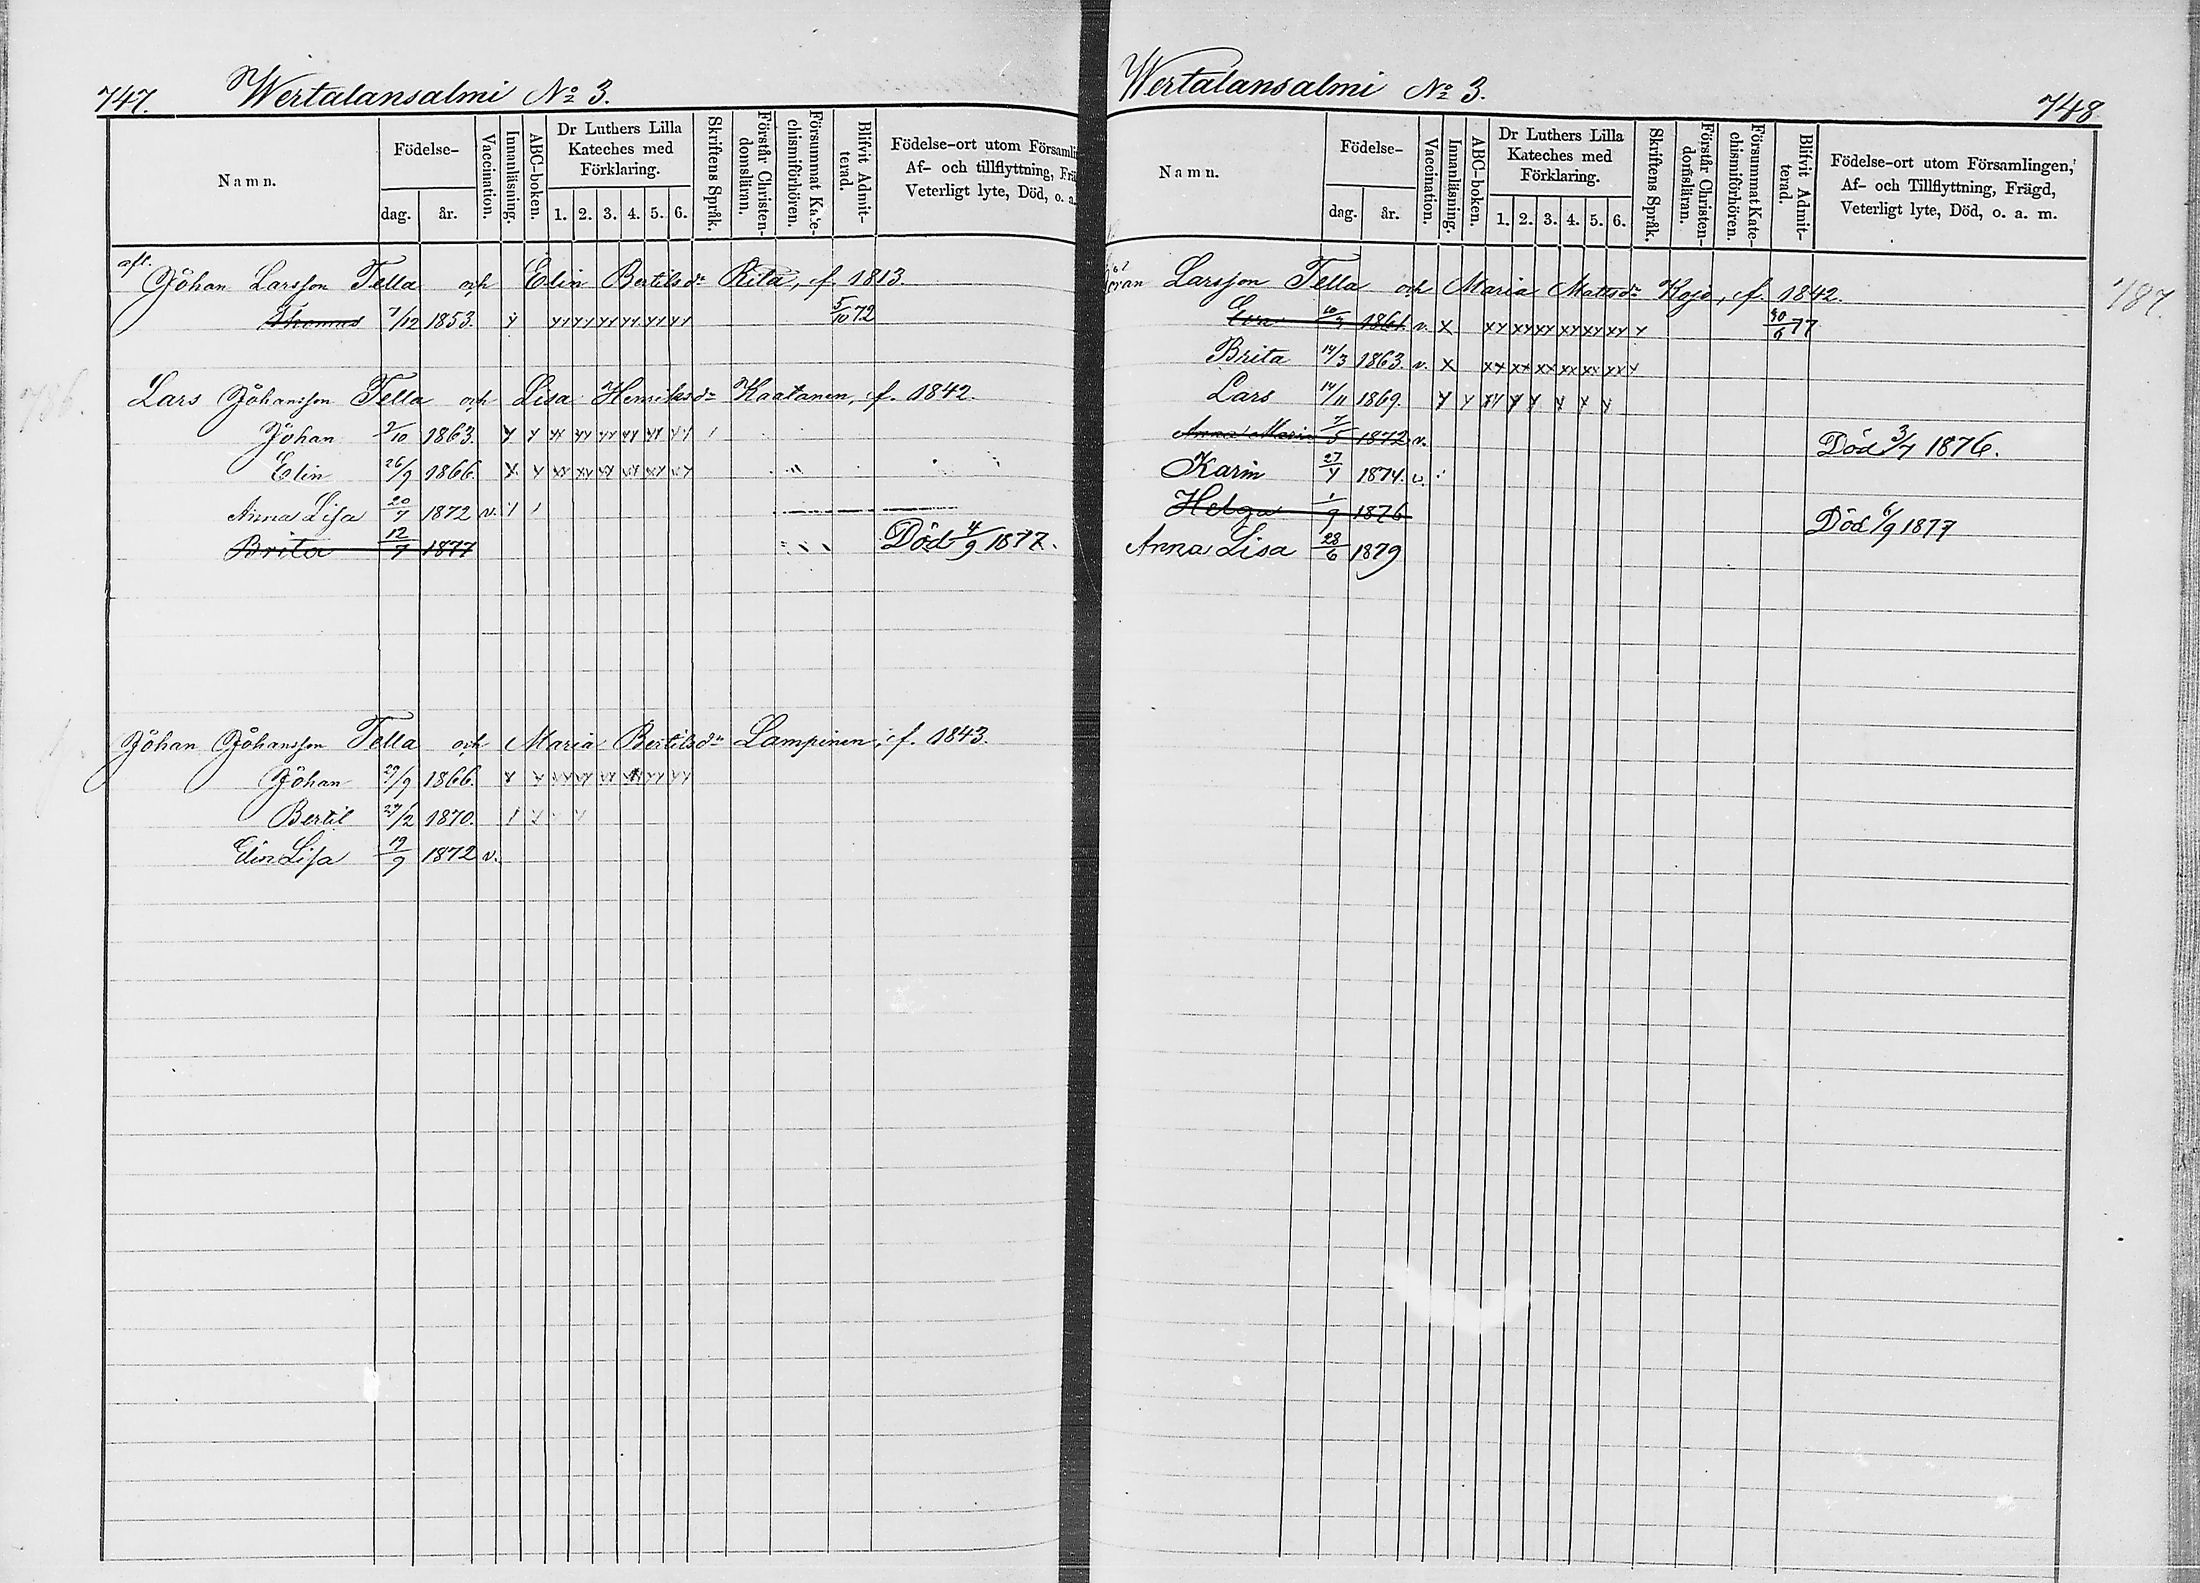 747. Wertalansalmi No 3.
Namn.
Födelse-
dag. år.
Vaccination.
Innanläsning.
ABC-boken.
Dr Luthers Lilla
Kateches med
Förklaring.
1. 2. 3. 4. 5. 6.
Skriftens Språk.
Förstår Christen-
domsläran.
Försummat Kate-
chismiförhören.
Blifvit Admit-
terad.
Födelse-ort utom Församli
Af- och tillflyttning, Frä
Veterligt lyte, Död, o. a.
afl.
Johan Larsson Tella och Elin Bertilsdr Rita, f. 1813.
Thomas 7/12 1853. y yy yy yy yy yy yy 5/10 72
Lars Johansson Tella och Lisa Henriksdr Kaatanen, f. 1842.
Johan 2/10 1863. y y yy yy yy yy yy yy
Elin 26/9 1866. x y xx xy xy xy xy xy
Anna Lisa 20/7 1872 v.
Brita 12/7 1877 Död 4/9 1877.
Johan Johansson Tella och Maria Bertilsdr Lampinen, f. 1843.
Johan 29/9 1866. y y yy yy yy yy yy yy
Bertil 27/2 1870.
Elin Lisa 19/9 1872 v.
Wertalansalmi No 3. 748
Namn.
Födelse-
dag. år.
Vaccination.
Innanläsning.
ABC-boken.
Dr Luthers Lilla
Kateches med
Förklaring.
1. 2. 3. 4. 5. 6.
Skriftens Språk.
Förstår Christen-
domsläran.
Försummat Kate-
chismiförhören.
Blifvit Admit-
terad.
Födelse-ort utom Församlingen,
Af- och Tillflyttning, Frägd,
Veterligt lyte, Död, o. a. m.
Larsson Tella och Maria Mattsdr Kojo, f. 1842.
787.
Eva 1861. v. x xy xy xy xy xy xy y 30/6 77
Brita 14/3 1863. v. x xy xx xx xx xx xy y
Lars 14/11 1869. y y yy y y y y y
Anna Maria 7/5 1872 v. Död 3/7 1876.
Karin 27/4 1874. v.
Helga 1/9 1876 Död 6/9 1877
Anna Lisa 28/6 1879